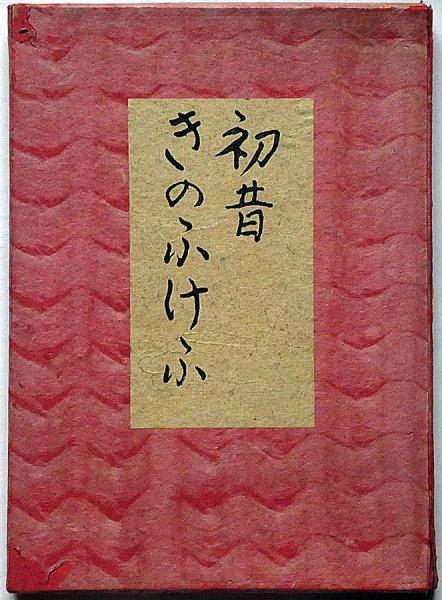 初昔
きのふけふ